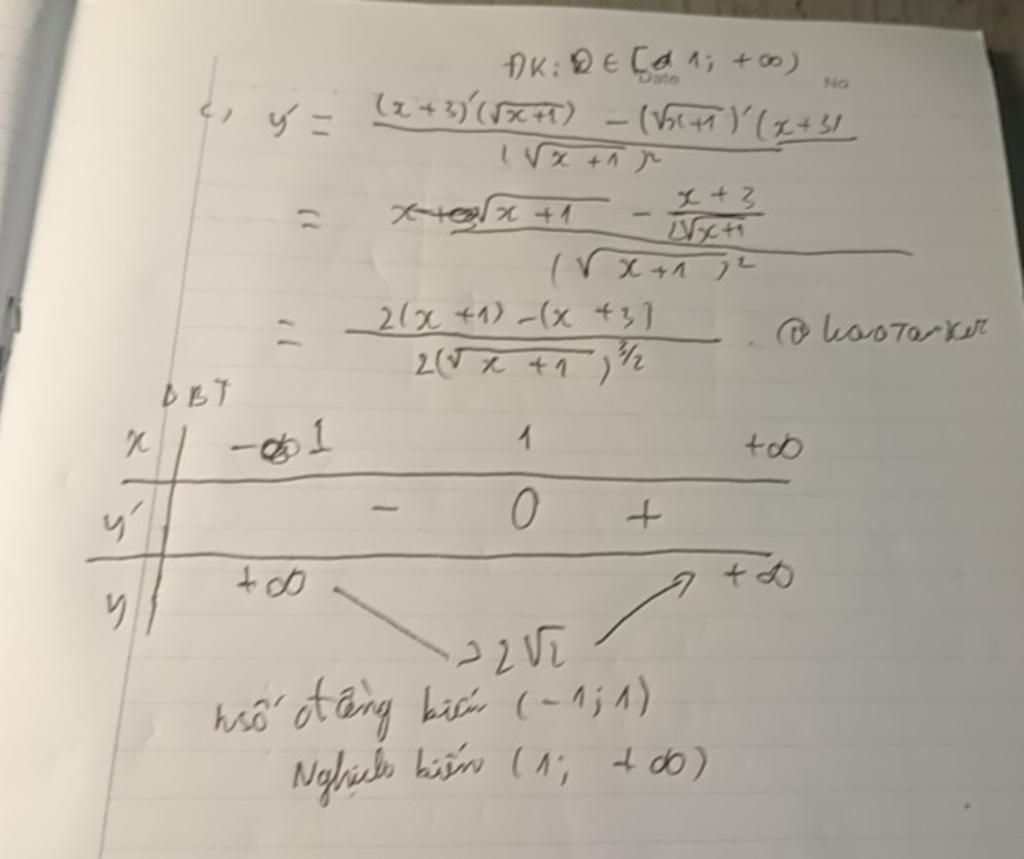 ĐK: D ∈ [ 1; +∞)
Date No
c, y' = ((x+3)'(√(x+1)) - (√(x+1))'(x+3)) / (√(x+1))²
= (√(x+1) - (x+3)/(2√(x+1))) / (√(x+1))²
= (2(x+1) - (x+3)) / (2(√(x+1))^(3/2)) .
BBT
x | -1 1 +∞
y' | - 0 +
y | +∞ ↘ 2√2 ↗ +∞
hsố đồng biến (-1; 1)
Nghịch biến (1; +∞)